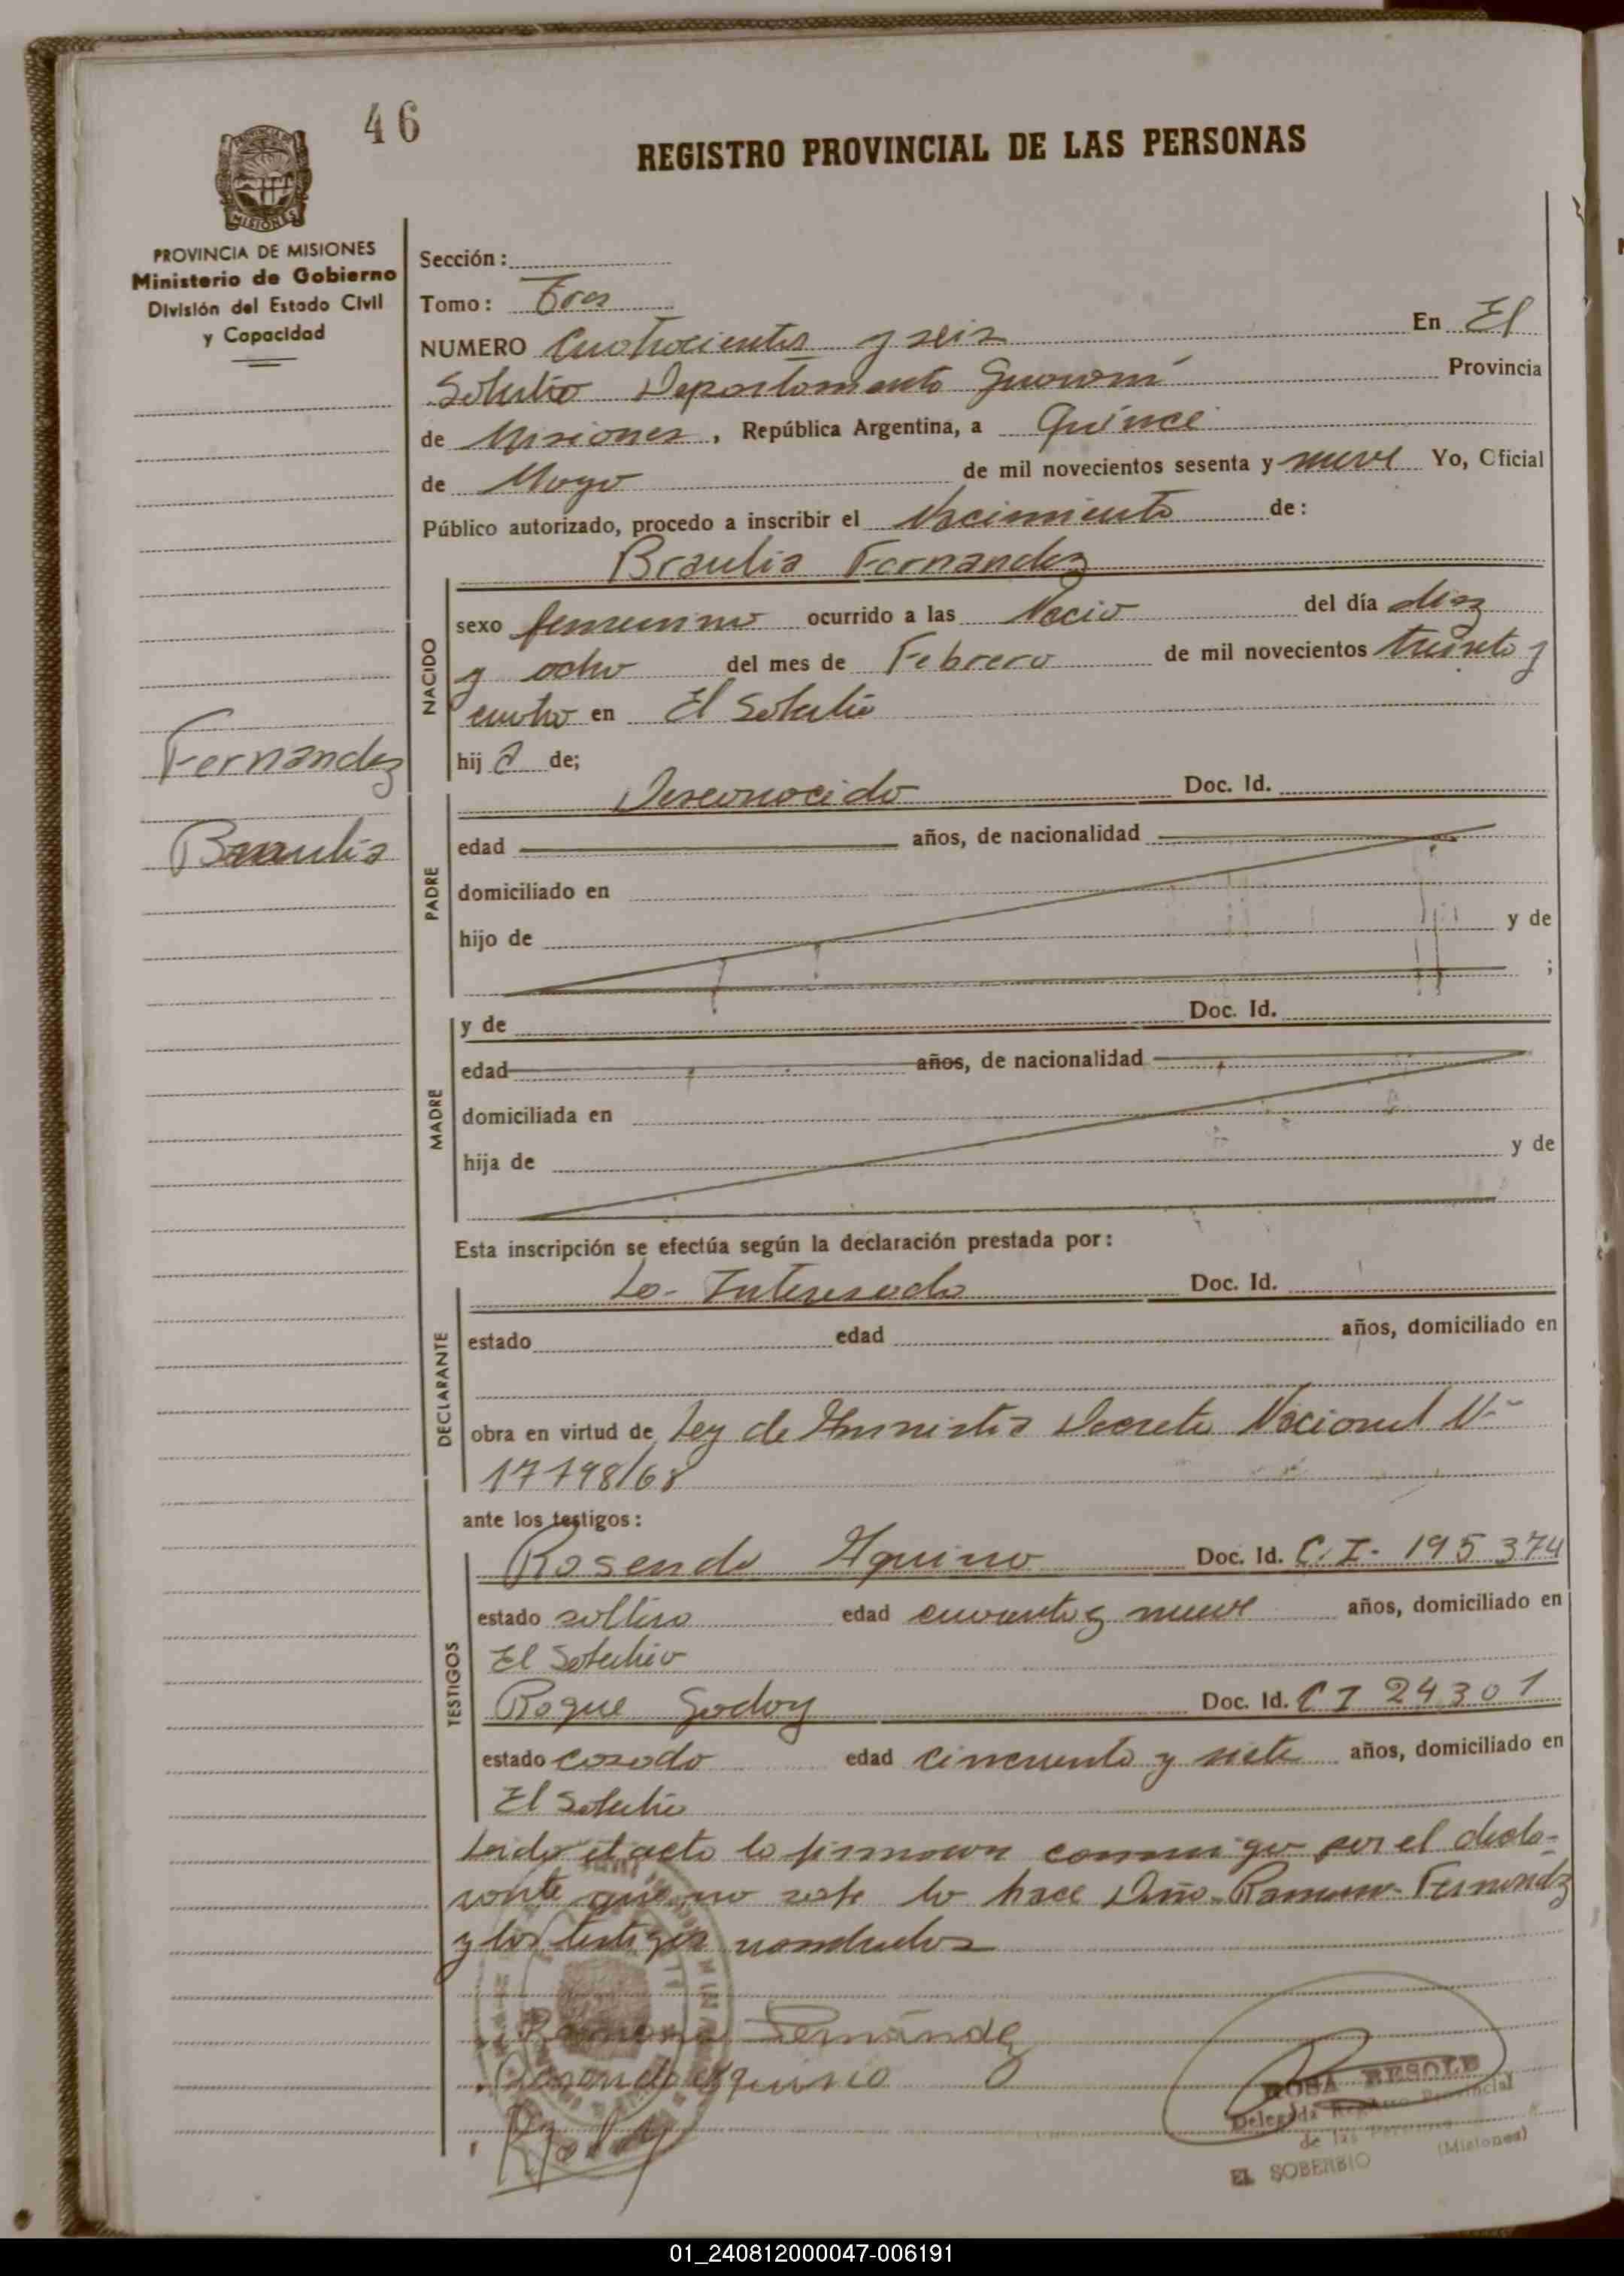 46
REGISTRO PROVINCIAL DE LAS PERSONAS
MISIONES
PROVINCIA DE MISIONES
Ministerio de Gobierno
División del Estado Civil
y Capacidad
Sección:
Tomo: Tres
NUMERO Cuatrocientos y seis En El
Soberbio Departamento Guaraní Provincia
de Misiones, República Argentina, a Quince
de Mayo de mil novecientos sesenta y nueve Yo, Oficial
Público autorizado, procedo a inscribir el Nacimiento de:
Braulia Fernandez
NACIDO
sexo femenino ocurrido a las Nacio del día diez
y ocho del mes de Febrero de mil novecientos treinta y
cuatro en El Soberbio
hij a de;
Fernandez
Braulia
PADRE
Desconocido Doc. Id.
edad años, de nacionalidad
domiciliado en
hijo de y de
;
MADRE
y de Doc. Id.
edad años, de nacionalidad
domiciliada en
hija de y de
Esta inscripción se efectúa según la declaración prestada por:
DECLARANTE
La Interesada Doc. Id.
estado edad años, domiciliado en
obra en virtud de Ley de Amnistia Decreto Nacional Nº
17798/68
ante los testigos:
TESTIGOS
Rosendo Aquino Doc. Id. C.I. 195374
estado soltero edad cuarenta y nueve años, domiciliado en
El Soberbio
Roque Godoy Doc. Id. C I 24301
estado casado edad cincuenta y siete años, domiciliado en
El Soberbio
Leido el acta la firmaron conmigo por el decla-
rante que no sabe lo hace Ramona Fernandez
y los testigos nombrados
Ramona Fernández
Rosendo Aquino
ROSA RESOLE
Delegada Registro Provincial
de las Personas
EL SOBERBIO (Misiones)
01_240812000047-006191